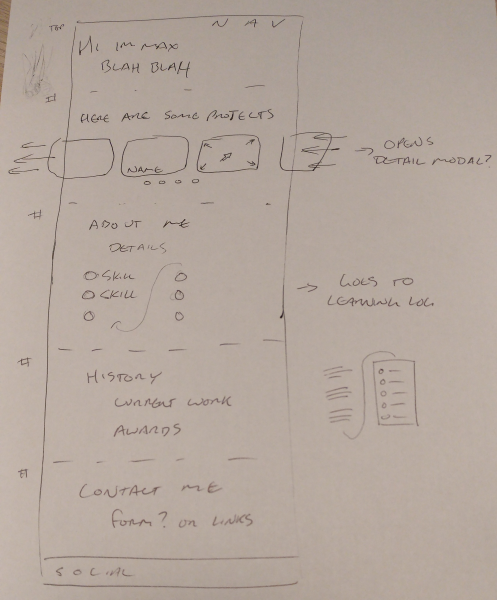 TOP
N A V
HI IM MAX
BLAH BLAH
#
HERE ARE SOME PROJECTS
NAME
→ OPENS
DETAIL MODAL?
#
ABOUT ME
DETAILS
O SKILL
O SKILL
→ GOES TO
LEARNING LOG
#
HISTORY
CURRENT WORK
AWARDS
#
CONTACT ME
FORM? OR LINKS
SOCIAL